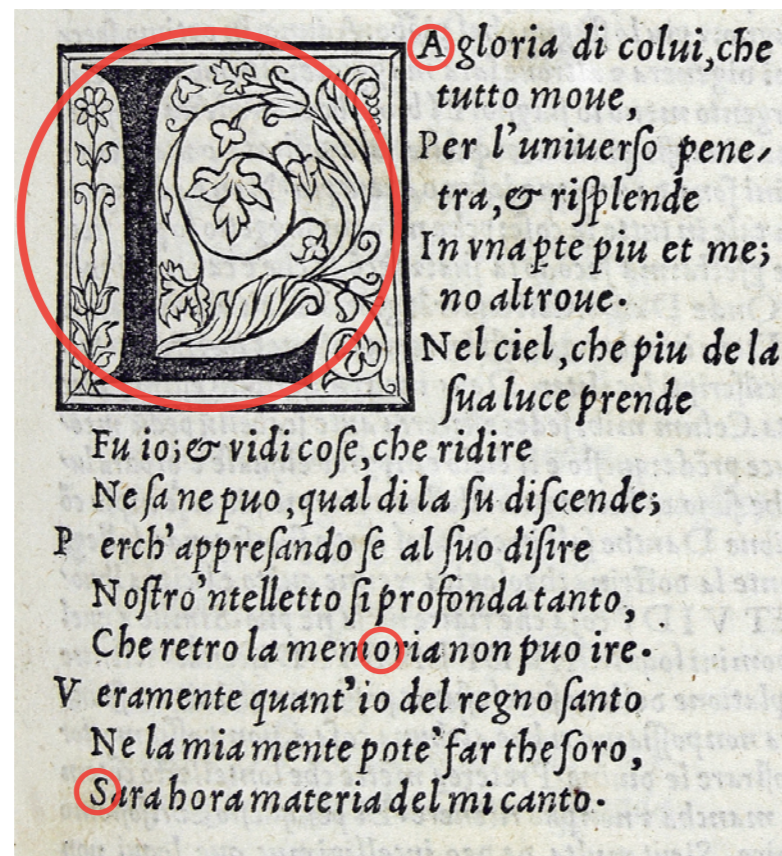 LA gloria di colui, che
tutto moue,
Per l'uniuerſo pene-
tra, & riſplende
In vna ꝑte piu et me;
no altroue.
Nel ciel, che piu de la
ſua luce prende
Fu io; & vidi coſe, che ridire
Ne ſa ne puo, qual di la ſu diſcende;
Perch'appreſando ſe al ſuo diſire
Noſtro'ntelletto ſi profonda tanto,
Che retro la memoria non puo ire.
Veramente quant'io del regno ſanto
Ne la mia mente pote' far theſoro,
Sara hora materia del mi canto.